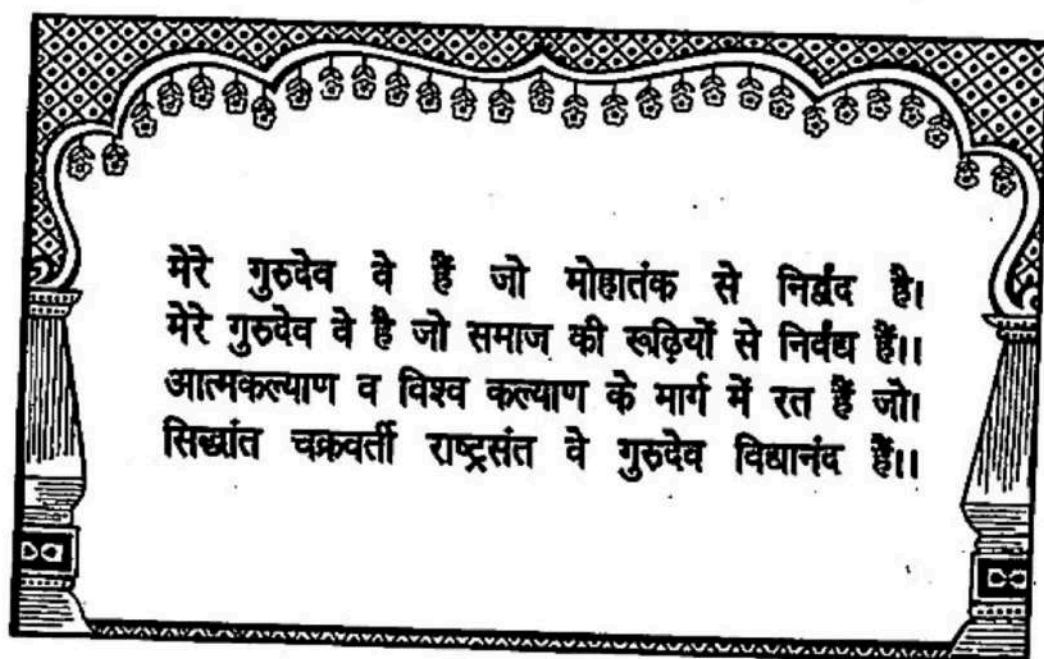 मेरे गुरुदेव वे हैं जो मोहातंक से निर्द्वंद है।
मेरे गुरुदेव वे है जो समाज की रूढ़ियों से निर्वंद्य हैं।।
आत्मकल्याण व विश्व कल्याण के मार्ग में रत हैं जो।
सिद्धांत चक्रवर्ती राष्ट्रसंत वे गुरुदेव विद्यानंद हैं।।